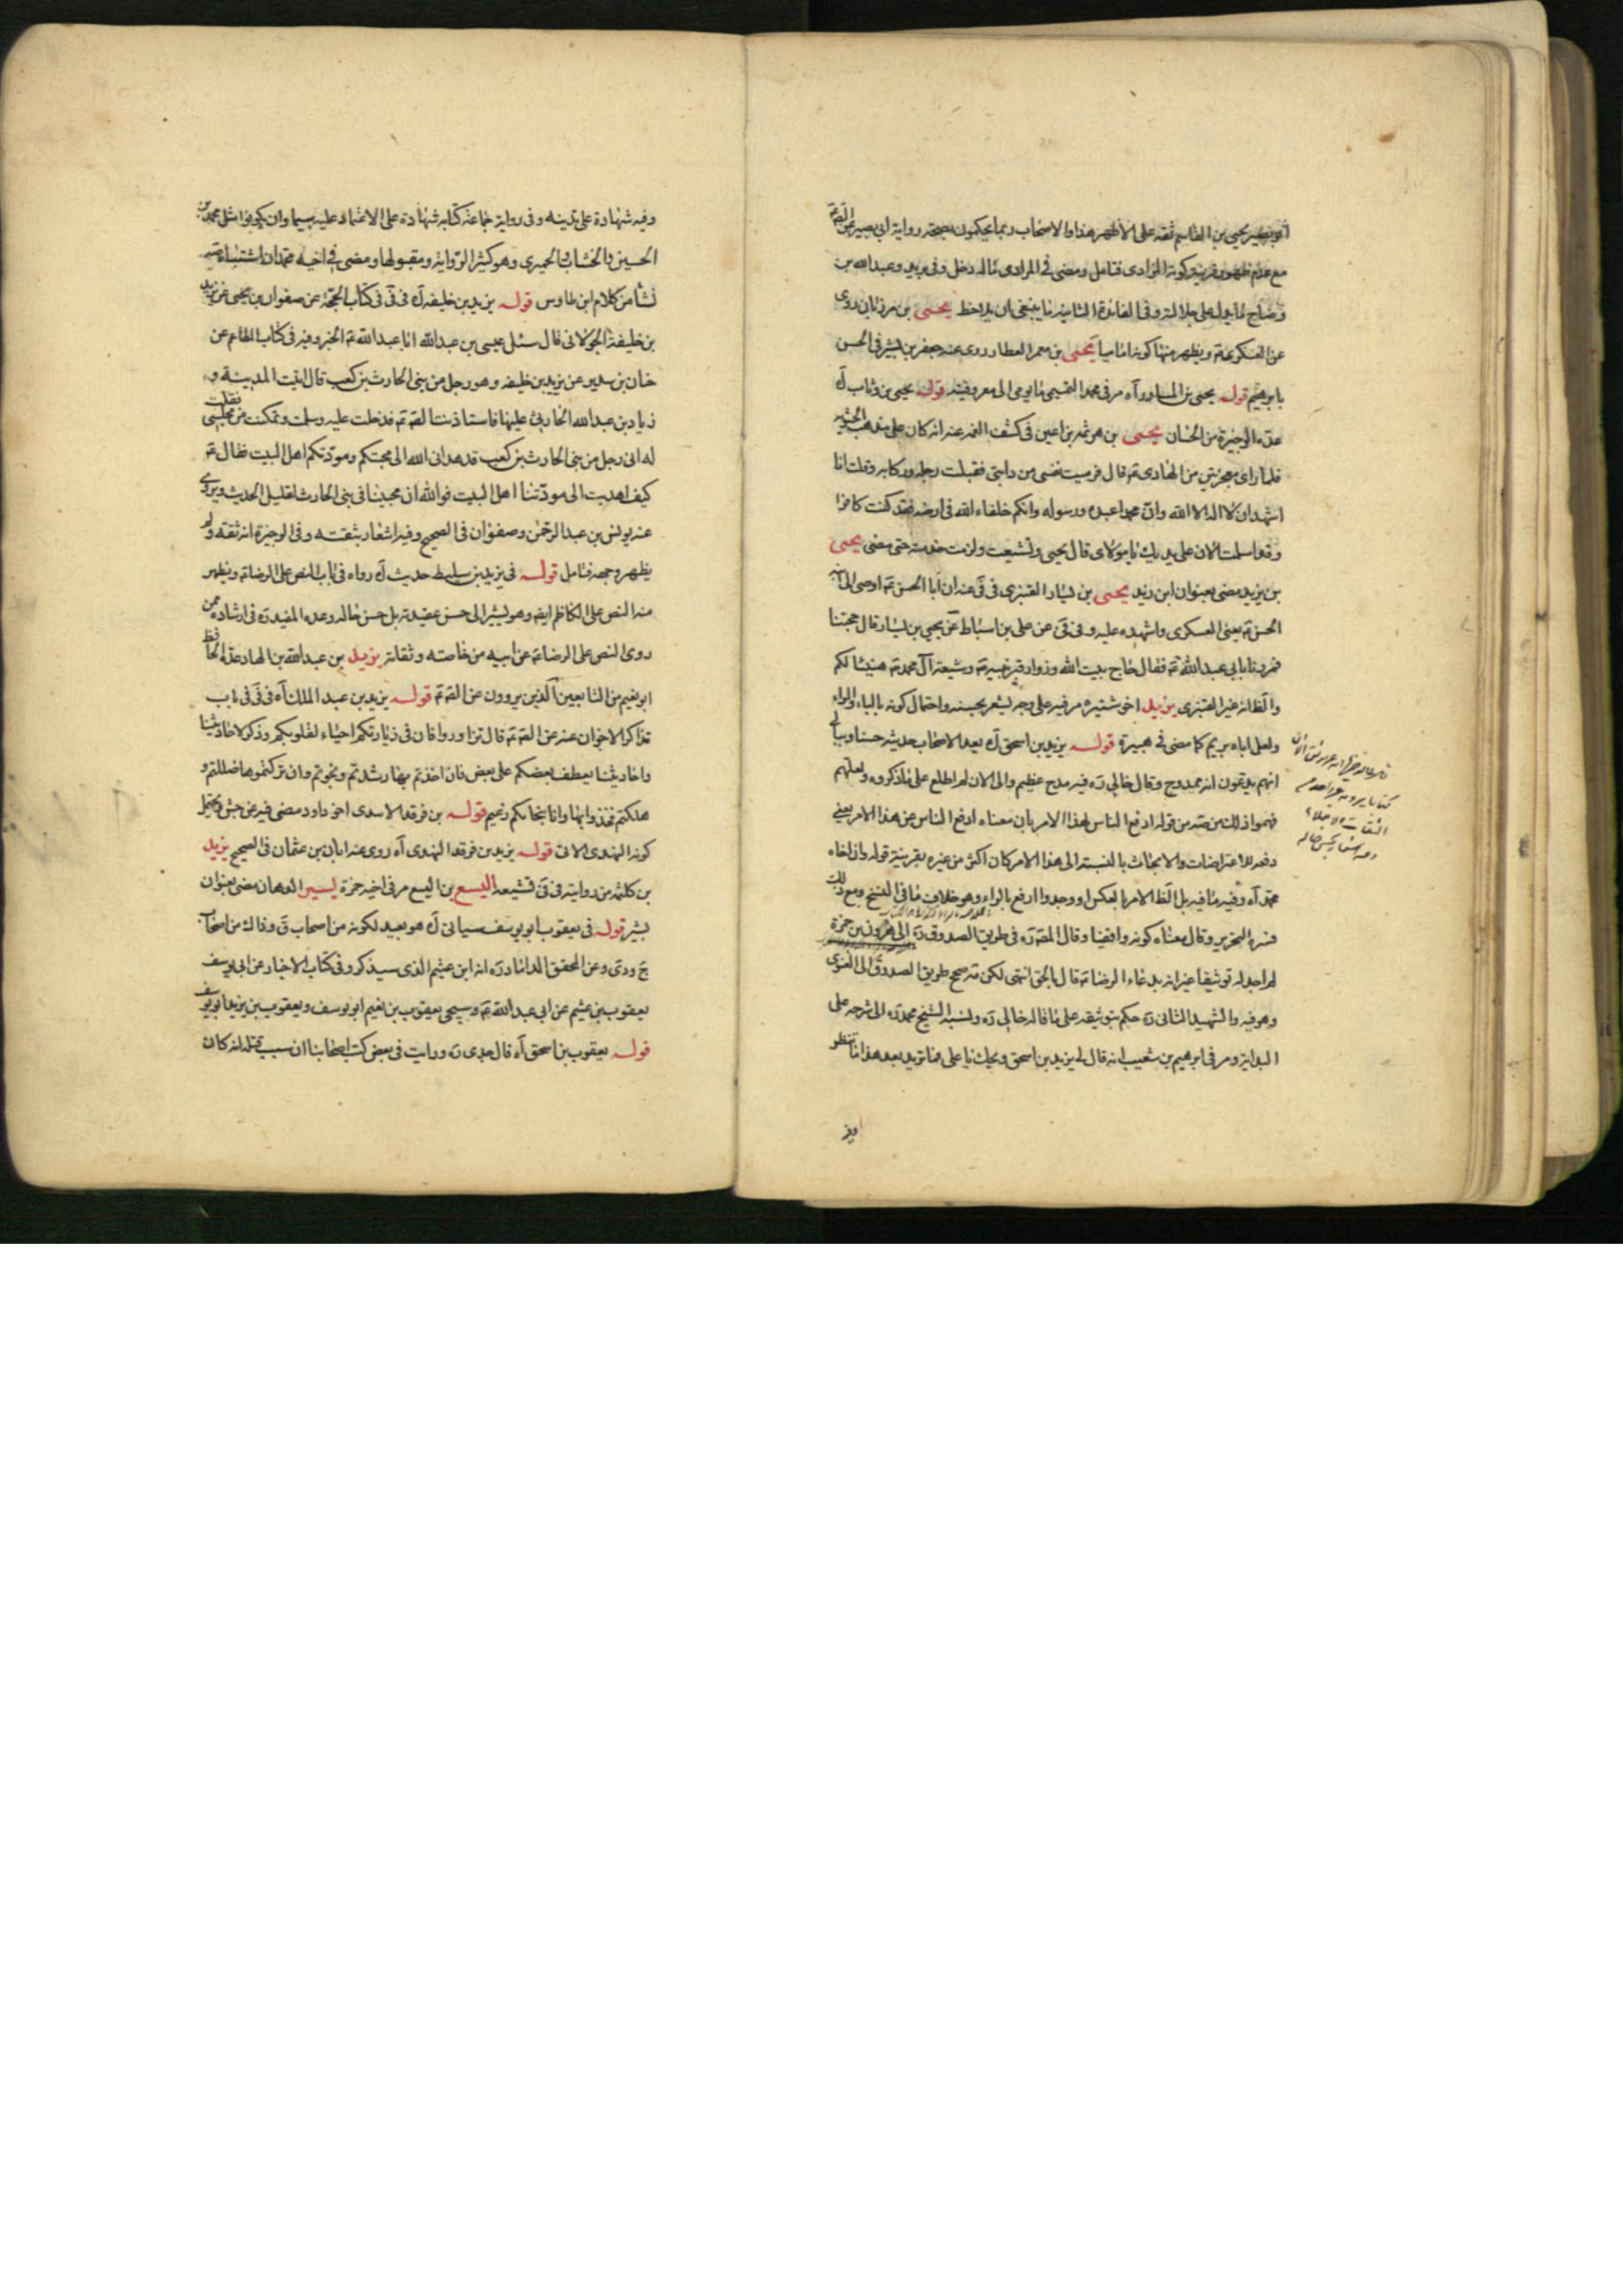 ابو بصير يحيى بن القاسم ثقة على الاظهر هذا والاصحاب ربما يحكمون بصحة رواية ابى بصير عن الصّ عَ
مع عدم ظهور قرينة كونه المرادى فتامل ومضى فى المرادى ماله دخل وفى بريد وعبد الله بن
وضاح ما يدل على جلالته وفى الفائدة الثانية ما ينبغى ان يلاحظ يحيى بن مرزبان روى
عن العسكرى عَ ويظهر منها كونه اماميا يحيى بن معمر العطار روى عنه جعفر بن بشير فى الحسن
بابرهيم قوله يحيى بن المساور آه مر فى محمد التميمى ما يومى الى معروفيته قوله يحيى بن وثاب آه
عدّه الوجيزة من الحسان يحيى بن هرثمه بن اعين فى كشف الغمه عنه انه كان على مذهب الحشويه
فلما راى معجزتين من الهادى عَ قال فرميت نفسى من دابتى فقبلت رجله وركابه وقلت انا
اشهد ان لا اله الا الله وان محمدا عبده ورسوله وانكم خلفاء الله فى ارضه فقد كنت كافرا
وقد اسلمت الان على يديك يا مولاى قال يحيى وتشيعت ولزمت خدمته حتى مضى يحيى
بن يزيد مضى بعنوان ابن زيد يحيى بن يسار القنبرى فى فىَ عنه ان ابا الحسن عَ اوصى الى ابنه
الحسن عَ يعنى العسكرى واشهده عليه وفى فىَ عن على بن اسباط عن يحيى بن يسار قال حججنا
فمررنا بابى عبد الله عَ فقال حاج بيت الله وزوار قبر نبيه عَ وشيعة آل محمد عَ هنيئا لكم
والظ انه غير القنبرى يزيد اخو شتيره مر فيه على وجه يشعر بحسنه واحتمال كونه بالباء والراء
ولعل اباه بريم كما مضى فى هبيرة قوله يزيد بن اسحق آه يعد الاصحاب حديثه حسنا وببالى
انهم يدعون انه ممدوح وقال خالى رَه فيه مدح عظيم والى الان لم اطلع على ما ذكروه ولعلهم
فهموا ذلك من صه من قوله ادفع الناس لهذا الامر بان معناه ادفع الناس عن هذا الامر يعنى
دفعه الاعتراضات والابحاث بالنسبة الى هذا الامر كان اكثر من غيره بقرينة قوله وان اخاه
محمد آه وفيه ما فيه بل الظ الامر بالعكس او وجدوا ارفع بالراء وهو خلاف ما فى النسخ ومع ذلك
فسره التحرير وقال معناه كونه واقفيا وقال المصَ رَه فى طريق الصدوق رَه الى هرون بن حمزة
لم اجد له توثيقا غير انه بدعاء الرضا عَ قال بالحق انتهى لكن صه صحح طريق الصدوق الى الغنوى
وهو فيه والشهيد الثانى رَه حكم بتوثيقه على ما قاله خالى رَه ونسبه الشيخ محمد رَه الى شرحه على
البداية ومر فى ابرهيم بن شعيب انه قال له يزيد بن اسحق ويحك يا على فما تريد بعد هذا اما تنظر
وفيه
وفيه شهادة على تدينه وفى رواية جماعة كتابه شهادة على الاعتماد عليه سيما وان يكونوا مثل محمد بن
الحسين والخشاب والحميرى وهو كثير الرواية ومقبولها ومضى فى اخيه محمد ان اشتباه
نشأ من كلام ابن طاوس قوله يزيد بن خليفه آه فى فىَ فى كتاب الحجة عن صفوان بن يحيى عن يزيد
بن خليفة الجولانى قال سئل عيسى بن عبد الله ابا عبد الله عَ الخبر وفيه فى كتاب الطاعم عن
حنان بن سدير عن يزيد بن خليفه وهو رجل من بنى الحارث بن كعب قال اتيت المدينة و
زياد بن عبد الله الحارثى عليها فاستاذنت الصَ عَ فدخلت عليه وسلمت وتمكنت من مجلسى فقلت
له انى رجل من بنى الحارث بن كعب قد هدانى الله الى محبتكم ومودتكم اهل البيت فقال عَ
كيف اهديت الى مودتنا اهل البيت فوالله ان محبينا فى بنى الحارث لقليل الحديث ويروى
عنه يونس بن عبد الرحمن وصفوان فى الصحيح وفيه اشعار بثقته وفى الوجيزة انه ثقه ولم
يظهر وجهه فتامل قوله فى يزيد بن سليط حديث آه رواه فى باب النص على الرضا عَ ويظهر
منه النص على الكاظم ايضَ وهو يشير الى حسن عقيدته بل حسن حاله وعده المفيد رَه فى ارشاده ممن
روى النص على الرضا عَ عن ابيه من خاصته وثقاته يزيد بن عبد الله بن الهاد عدّه الحافظ
ابو نعيم من التابعين الذين يروون عن الصَ عَ قوله يزيد بن عبد الملك آه فى فىَ فى باب
تذاكر الاخوان عنه عن الصَ عَ قال تزاوروا فان فى زيارتكم احياء لقلوبكم وذكر لاحاديثنا
واحاديثنا يعطف بعضكم على بعض فان اخذتم بها رشدتم ونجوتم وان تركتموها ضللتم و
هلكتم فخذوا بها وانا بنجاتكم زعيم قوله بن فرقد الاسدى اخو داود مضى فيه عن جش ويحتمل
كونه النهدى الاتى قوله يزيد بن فرقد النهدى آه روى عنه ابان بن عثمان فى الصحيح يزيد
بن كلثمه من روايته فى فىَ تشيعه اليسع بن اليسع مر فى اخيه حمزة يسير الدهان مضى بعنوان
بشير قوله فى يعقوب ابو يوسف سياتى آه هو بعيد لكونه من اصحاب قَ وذاك من اصحاب
جَ ودىَ وعن المحقق الداماد رَه انه ابن عثيم الذى سيذكر وفى كتاب الاخبار عن ابى يوسف
يعقوب بن عثيم عن ابى عبد الله عَ وسيجى يعقوب بن نعيم ابو يوسف ويعقوب بن يزيد ابو يوسف
قوله يعقوب بن اسحق آه قال جدى رَه ورايت فى بعض كتب اصحابنا ان سبب قتله انه كان